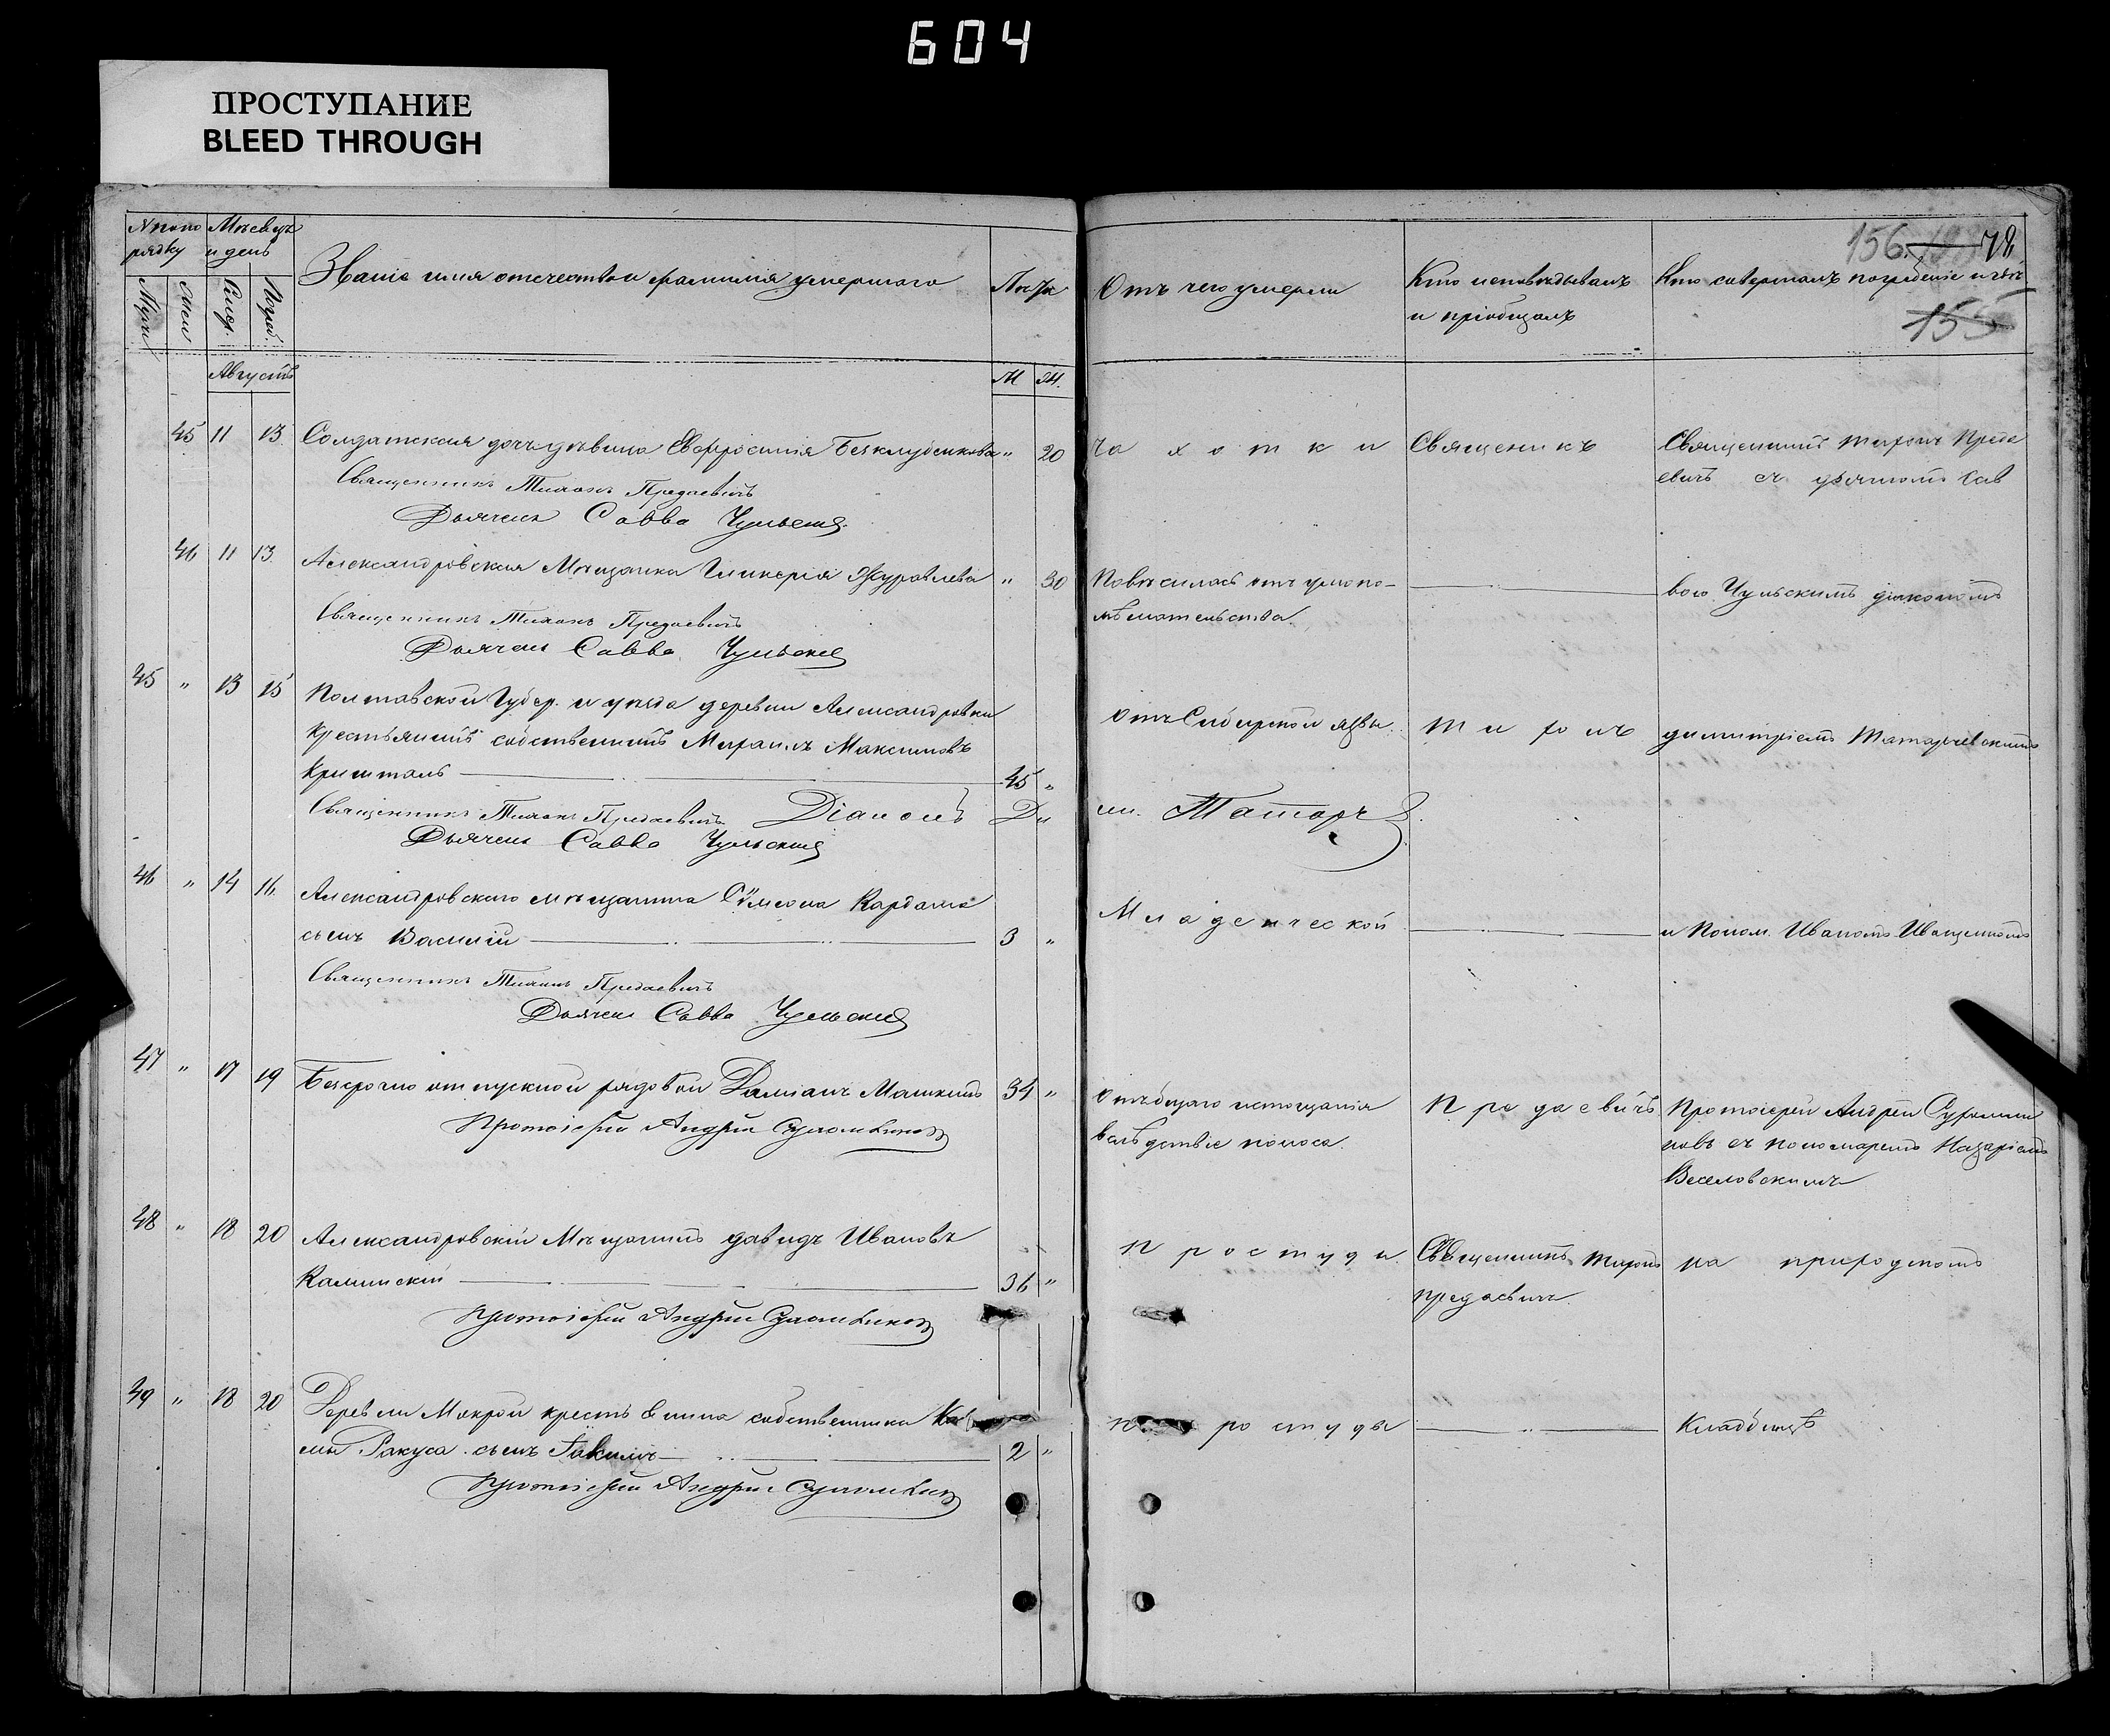 604
ПРОСТУПАНИЕ
BLEED THROUGH
№ по по Мѣсяцъ
рядку и день
Званіе имя отечество и фамилія умершаго
Лѣта
Муж Жен Смер. Погреб.
Августъ
М Ж.
45 11 13 Солдатская дочь дѣвица Евфросинія Безклубенкова " 20
Священникъ Тихонъ Предаевичъ
Дьячекъ Савва Чульскій
46 11 13 Александровская Мѣщанка Гликерія Журавлева " 30
Священникъ Тихонъ Предаевичъ
Дьячекъ Савва Чульскій
45 " 13 15 Полтавской Губер. и уѣзда деревни Александровки
крестьянинъ собственникъ Максимовъ
45 "
Священникъ Тихонъ Предаевичъ Діаконъ Ди
Дьячекъ Савва Чульскій
46 " 14 16 Александровскаго мѣщанина Сѵмеона Кардаша
сынъ Василій 3 "
Священникъ Тихонъ Предаевичъ
Дьячекъ Савва Чульскій
47 " 17 19 Безсрочно отпускной рядовой Даміанъ Машкинъ 34 "
Протоіерей Андрей
48 " 18 20 Александровскій Мѣщанинъ Давидъ Ивановъ
Калинскій 36 "
Протоіерей Андрей
49 " 18 20 Деревни Мокрой крестьянина собственника
Ракуса сынъ Іакимъ 2 "
Протоіерей Андрей
156 78
155
Отъ чего умерли
Кто исповѣдывалъ
и пріобщалъ
Кто совершалъ погребеніе и гдѣ
чахотки Священикъ Священникъ Тихонъ Преда
евичъ съ дьячкомъ Сав
Повѣсилась отъ умопо-
мѣшательства
вою Чульскимъ діакономъ
Отъ Сибирской язвы Тихонъ Димитріемъ Татарчевскимъ
ми. Татарч
Младенческой и Поном. Иваномъ Иващенкомъ
Отъ общаго истощанія
вслѣдствіе поноса.
Предаевичъ
Протоіерей Андрей
новъ съ пономаремъ Назаріемъ
Веселовскимъ
Простуды Священникъ Тихонъ
Предаевичъ
на природномъ
простуды Кладбищѣ